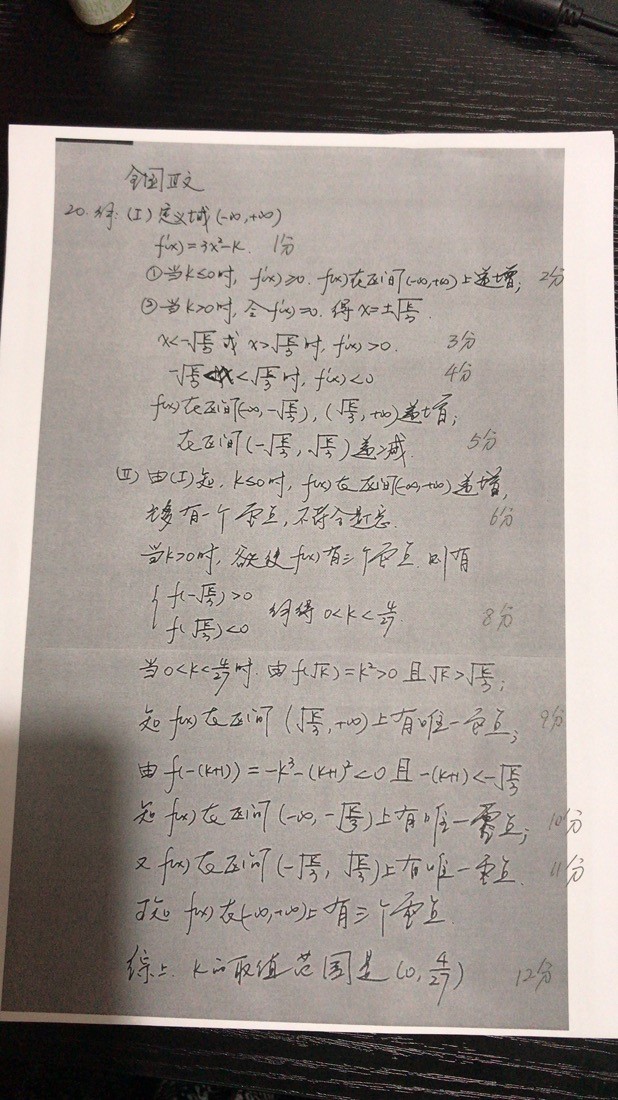 全国Ⅲ文
20.解:(Ⅰ)定义域(-∞,+∞)
f'(x)=3x²-k. 1分
①当k≤0时,f'(x)≥0.f(x)在区间(-∞,+∞)上递增; 2分
②当k>0时,令f'(x)=0.得x=±√(k/3).
x<-√(k/3)或x>√(k/3)时,f'(x)>0. 3分
-√(k/3)<x<√(k/3)时,f'(x)<0 4分
f(x)在区间(-∞,-√(k/3)),(√(k/3),+∞)递增;
在区间(-√(k/3),√(k/3))递减. 5分
(Ⅱ)由(Ⅰ)知,k≤0时,f(x)在区间(-∞,+∞)递增,
至多有一个零点,不符合题意. 6分
当k>0时,欲使f(x)有三个零点.则有
{f(-√(k/3))>0
f(√(k/3))<0 解得0<k<4/27. 8分
当0<k<4/27时.由f(√k)=k²>0且√k>√(k/3);
知f(x)在区间(√(k/3),+∞)上有唯一零点; 9分
由f(-(k+1))=-k³-(k+1)²<0且-(k+1)<-√(k/3)
知f(x)在区间(-∞,-√(k/3))上有唯一零点; 10分
又f(x)在区间(-√(k/3),√(k/3))上有唯一零点. 11分
可知f(x)在(-∞,+∞)上有三个零点.
综上.k的取值范围是(0,4/27) 12分